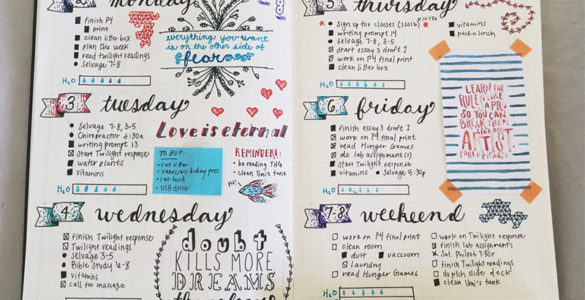 2
monday
finish P4
print
clean litter box
plan the week
read twilight readings
Selvage 7-8
H2O
everything you want
is on the other side of
fear
3
tuesday
Selvage 7-8, 3-5
Chiropractor
writing prompt 13
Start Twilight response
water plants
vitamins
H2O
Love is eternal
TO BUY:
cat litter
cat food
USB drive
REMINDERS:
be reading THG
clean Umi's
tank
4
wednesday
finish Twilight response
Twilight readings
Selvage 3-5
Bible study 6-8
vitamins
call for massage
doubt
KILLS MORE
DREAMS
5
thursday
Sign up for classes
writing prompt 14
Selvage 7-8, 3-5
start essay 3 draft 1
work on P4 final print
clean litter box
vitamins
pack a lunch
H2O
LEARN THE
RULES LIKE
A PRO,
SO YOU CAN
BREAK THEM
LIKE AN
ARTIST.
PABLO PICASSO
6
friday
finish essay 3 draft 1
work on P4 final print
read Hunger Games
do lab assignment(s)
start Twilight response
vitamins
Selvage
H2O
7-8
weekend
work on P4 final print
clean room
dust
vacuum
laundry
read Hunger Games
work on Twilight response
finish lab assignments
finish Twilight readings
slide deck
clean Umi's tank